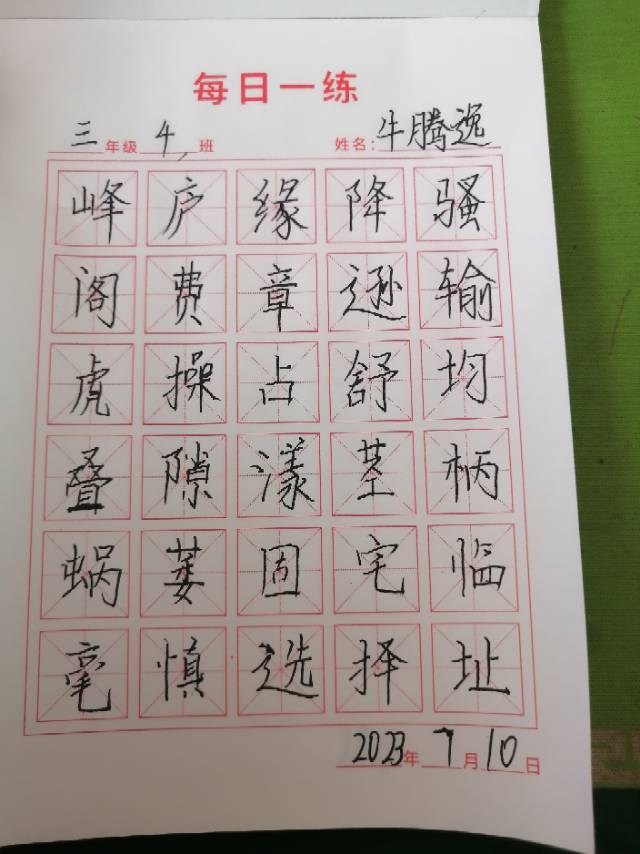 每日一练
三年级 4 班 姓名:牛腾逸
峰庐缘降骚
阁费章逊输
虎操占舒均
叠隙漾茎柄
蜗萎固宅临
毫慎选择址
2023年7月10日